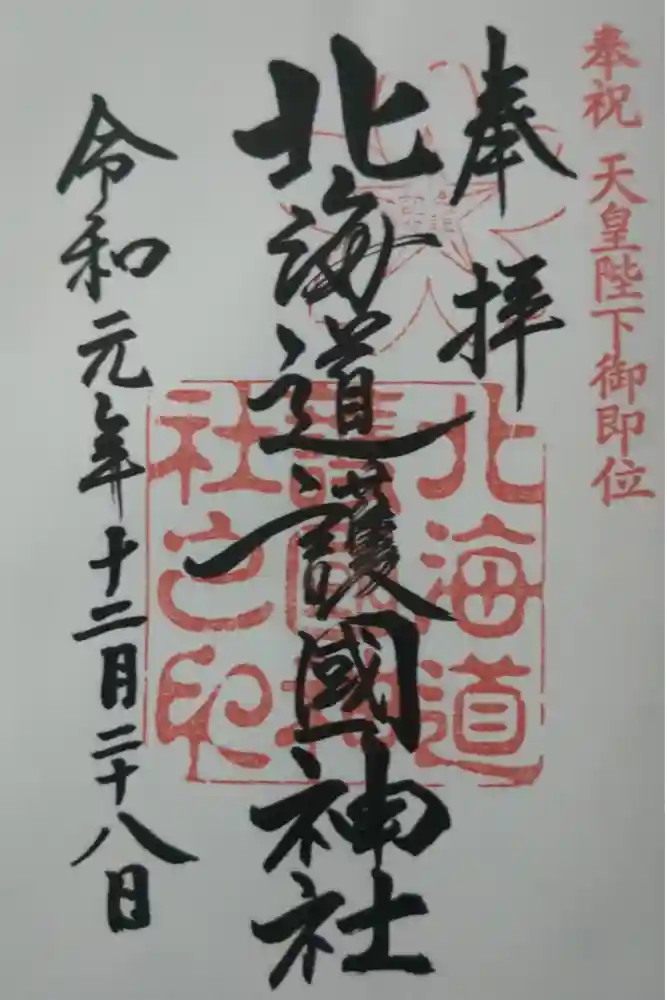 奉祝 天皇陛下御即位
奉拝
北海道護國神社
北海道
護國神
社之印
令和元年十二月二十八日